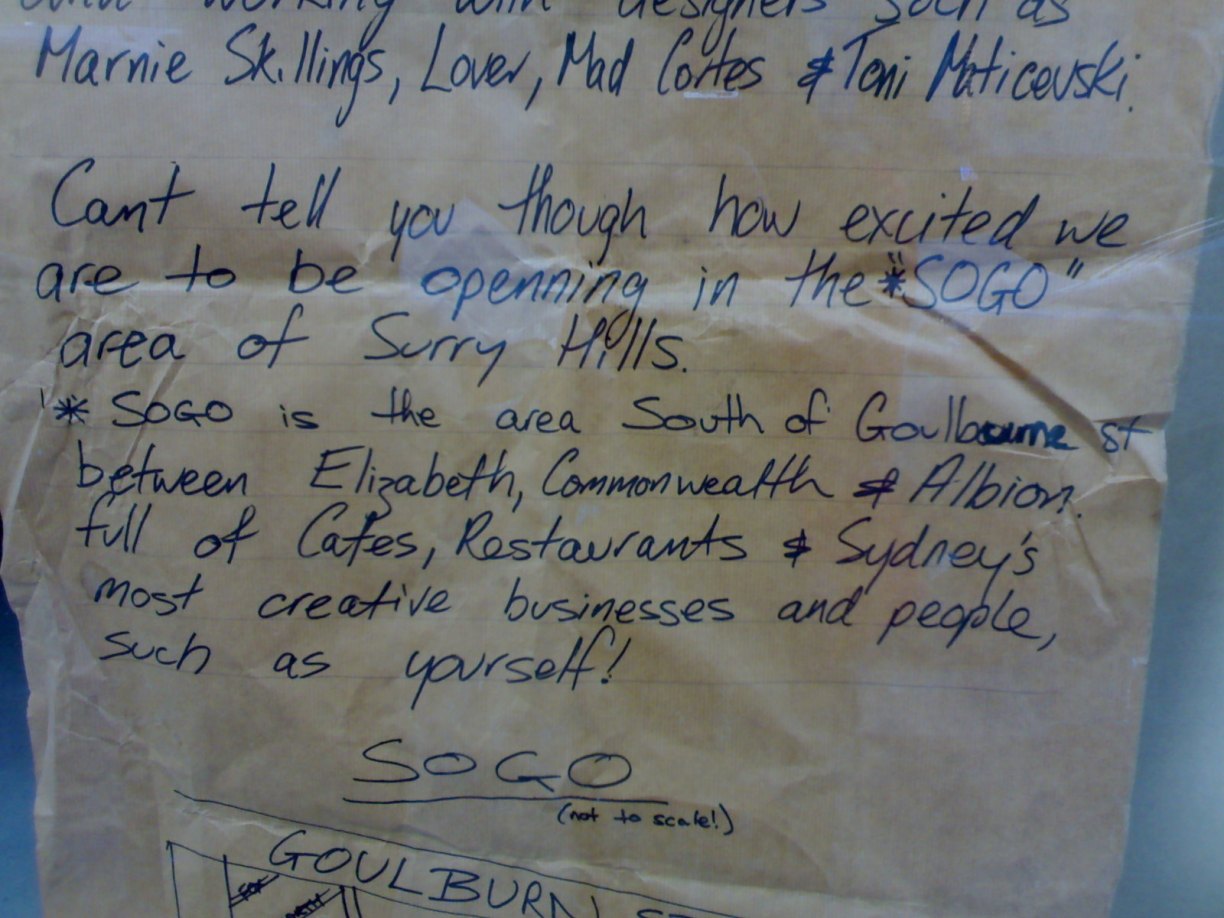 and working with designers such as
Marnie Skillings, Lover, Mad Cortes & Toni Maticevski.
Cant tell you though how excited we
are to be openning in the *"SOGO"
area of Surry Hills.
* SOGO is the area South of Goulbourne st
between Elizabeth, Commonwealth & Albion.
full of Cafes, Restaurants & Sydney's
most creative businesses and people,
such as yourself!
SOGO
(not to scale!)
GOULBURN ST